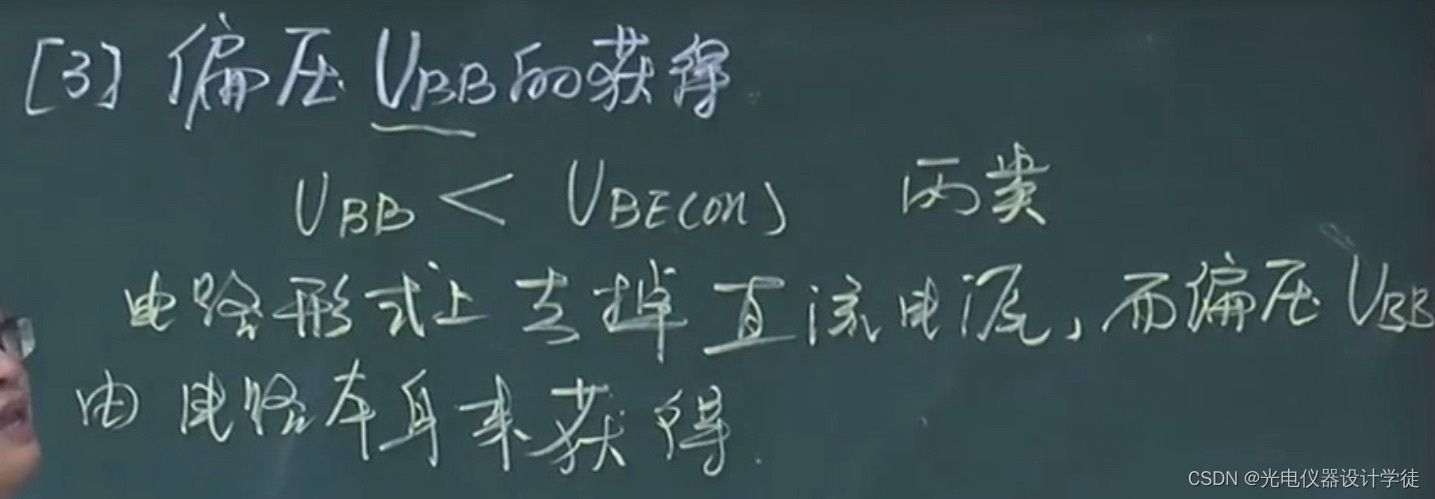 [3] 偏压 UBB的获得.
UBB < UBE(on) 两类
电路形式上去掉直流电源,而偏压UBB
由电路本身来获得.
CSDN @光电仪器设计学徒